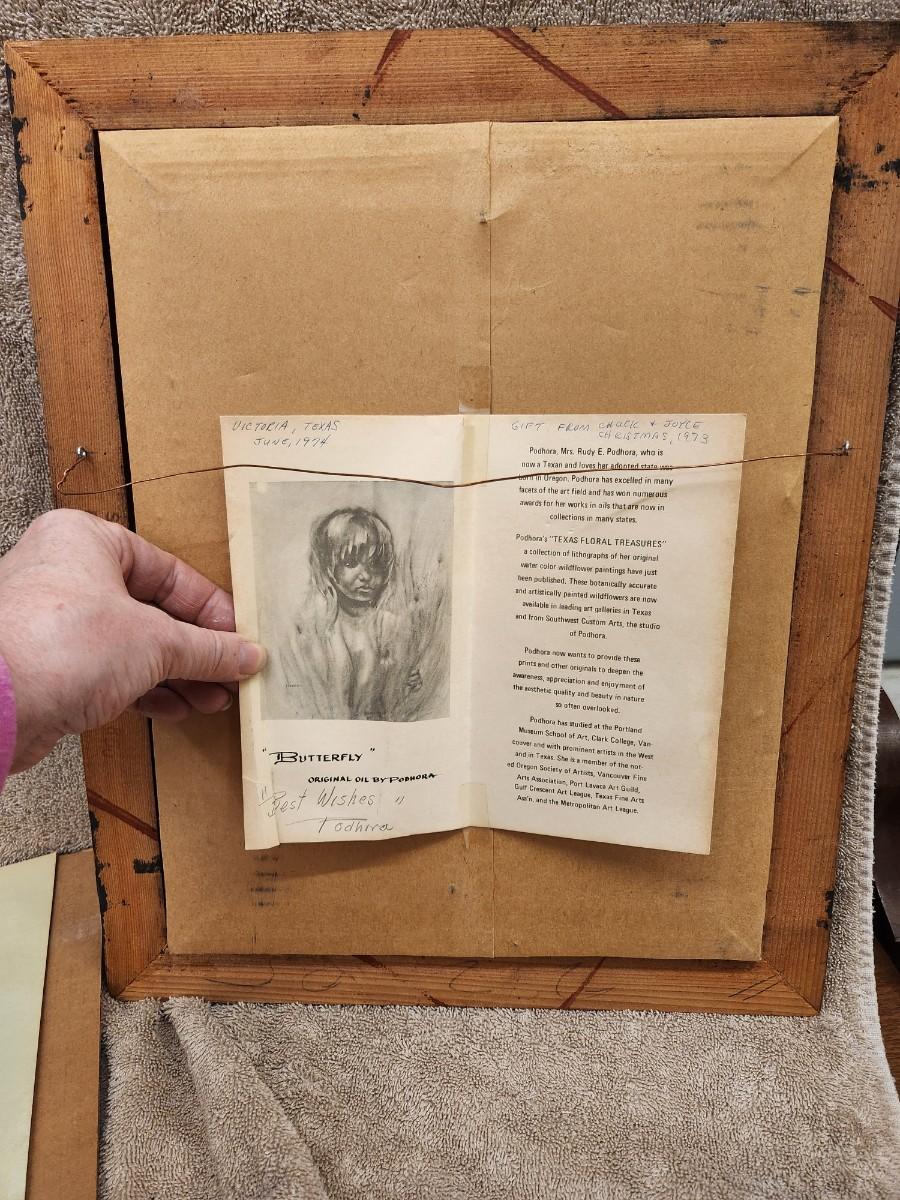 VICTORIA, TEXAS
JUNE, 1974
"BUTTERFLY"
ORIGINAL OIL BY PODHORA
"Best Wishes"
Podhora
GIFT FROM CHUCK & JOYCE
CHRISTMAS, 1973
Podhora, Mrs. Rudy E. Podhora, who is
now a Texan and loves her adopted state was
born in Oregon. Podhora has excelled in many
facets of the art field and has won numerous
awards for her works in oils that are now in
collections in many states.
Podhora's "TEXAS FLORAL TREASURES"
a collection of lithographs of her original
water color wildflower paintings have just
been published. These botanically accurate
and artistically painted wildflowers are now
available in leading art galleries in Texas
and from Southwest Custom Arts, the studio
of Podhora.
Podhora now wants to provide these
prints and other originals to deepen the
awareness, appreciation and enjoyment of
the aesthetic quality and beauty in nature
so often overlooked.
Podhora has studied at the Portland
Museum School of Art, Clark College, Van-
couver and with prominent artists in the West
and in Texas. She is a member of the not-
ed Oregon Society of Artists, Vancouver Fine
Arts Association, Port Lavaca Art Guild,
Gulf Crescent Art League, Texas Fine Arts
Ass'n. and the Metropolitan Art League.